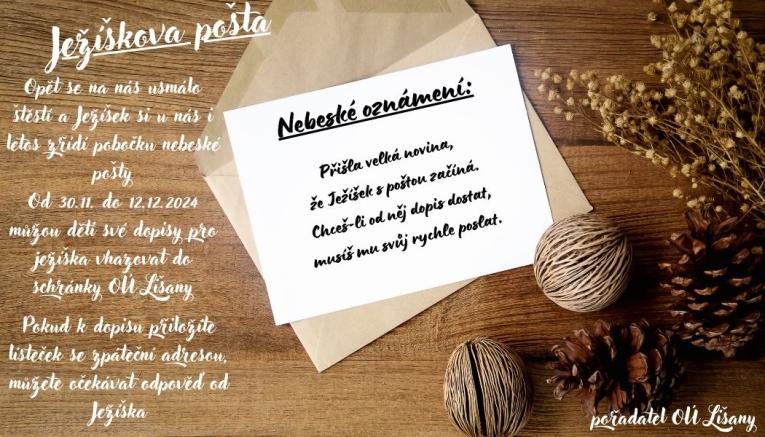 Ježíškova pošta
Opět se na nás usmálo
štěstí a Ježíšek si u nás i
letos zřídí pobočku nebeské
pošty
Od 30.11. do 12.12.2024
můžou děti své dopisy pro
ježíška vhazovat do
schránky OÚ Lišany
Pokud k dopisu přiložíte
lísteček se zpáteční adresou,
můžete očekávat odpověď od
Ježíška
Nebeské oznámení:
Přišla velká novina,
že Ježíšek s poštou začíná.
Chceš-li od něj dopis dostat,
musíš mu svůj rychle poslat.
pořadatel OÚ Lišany